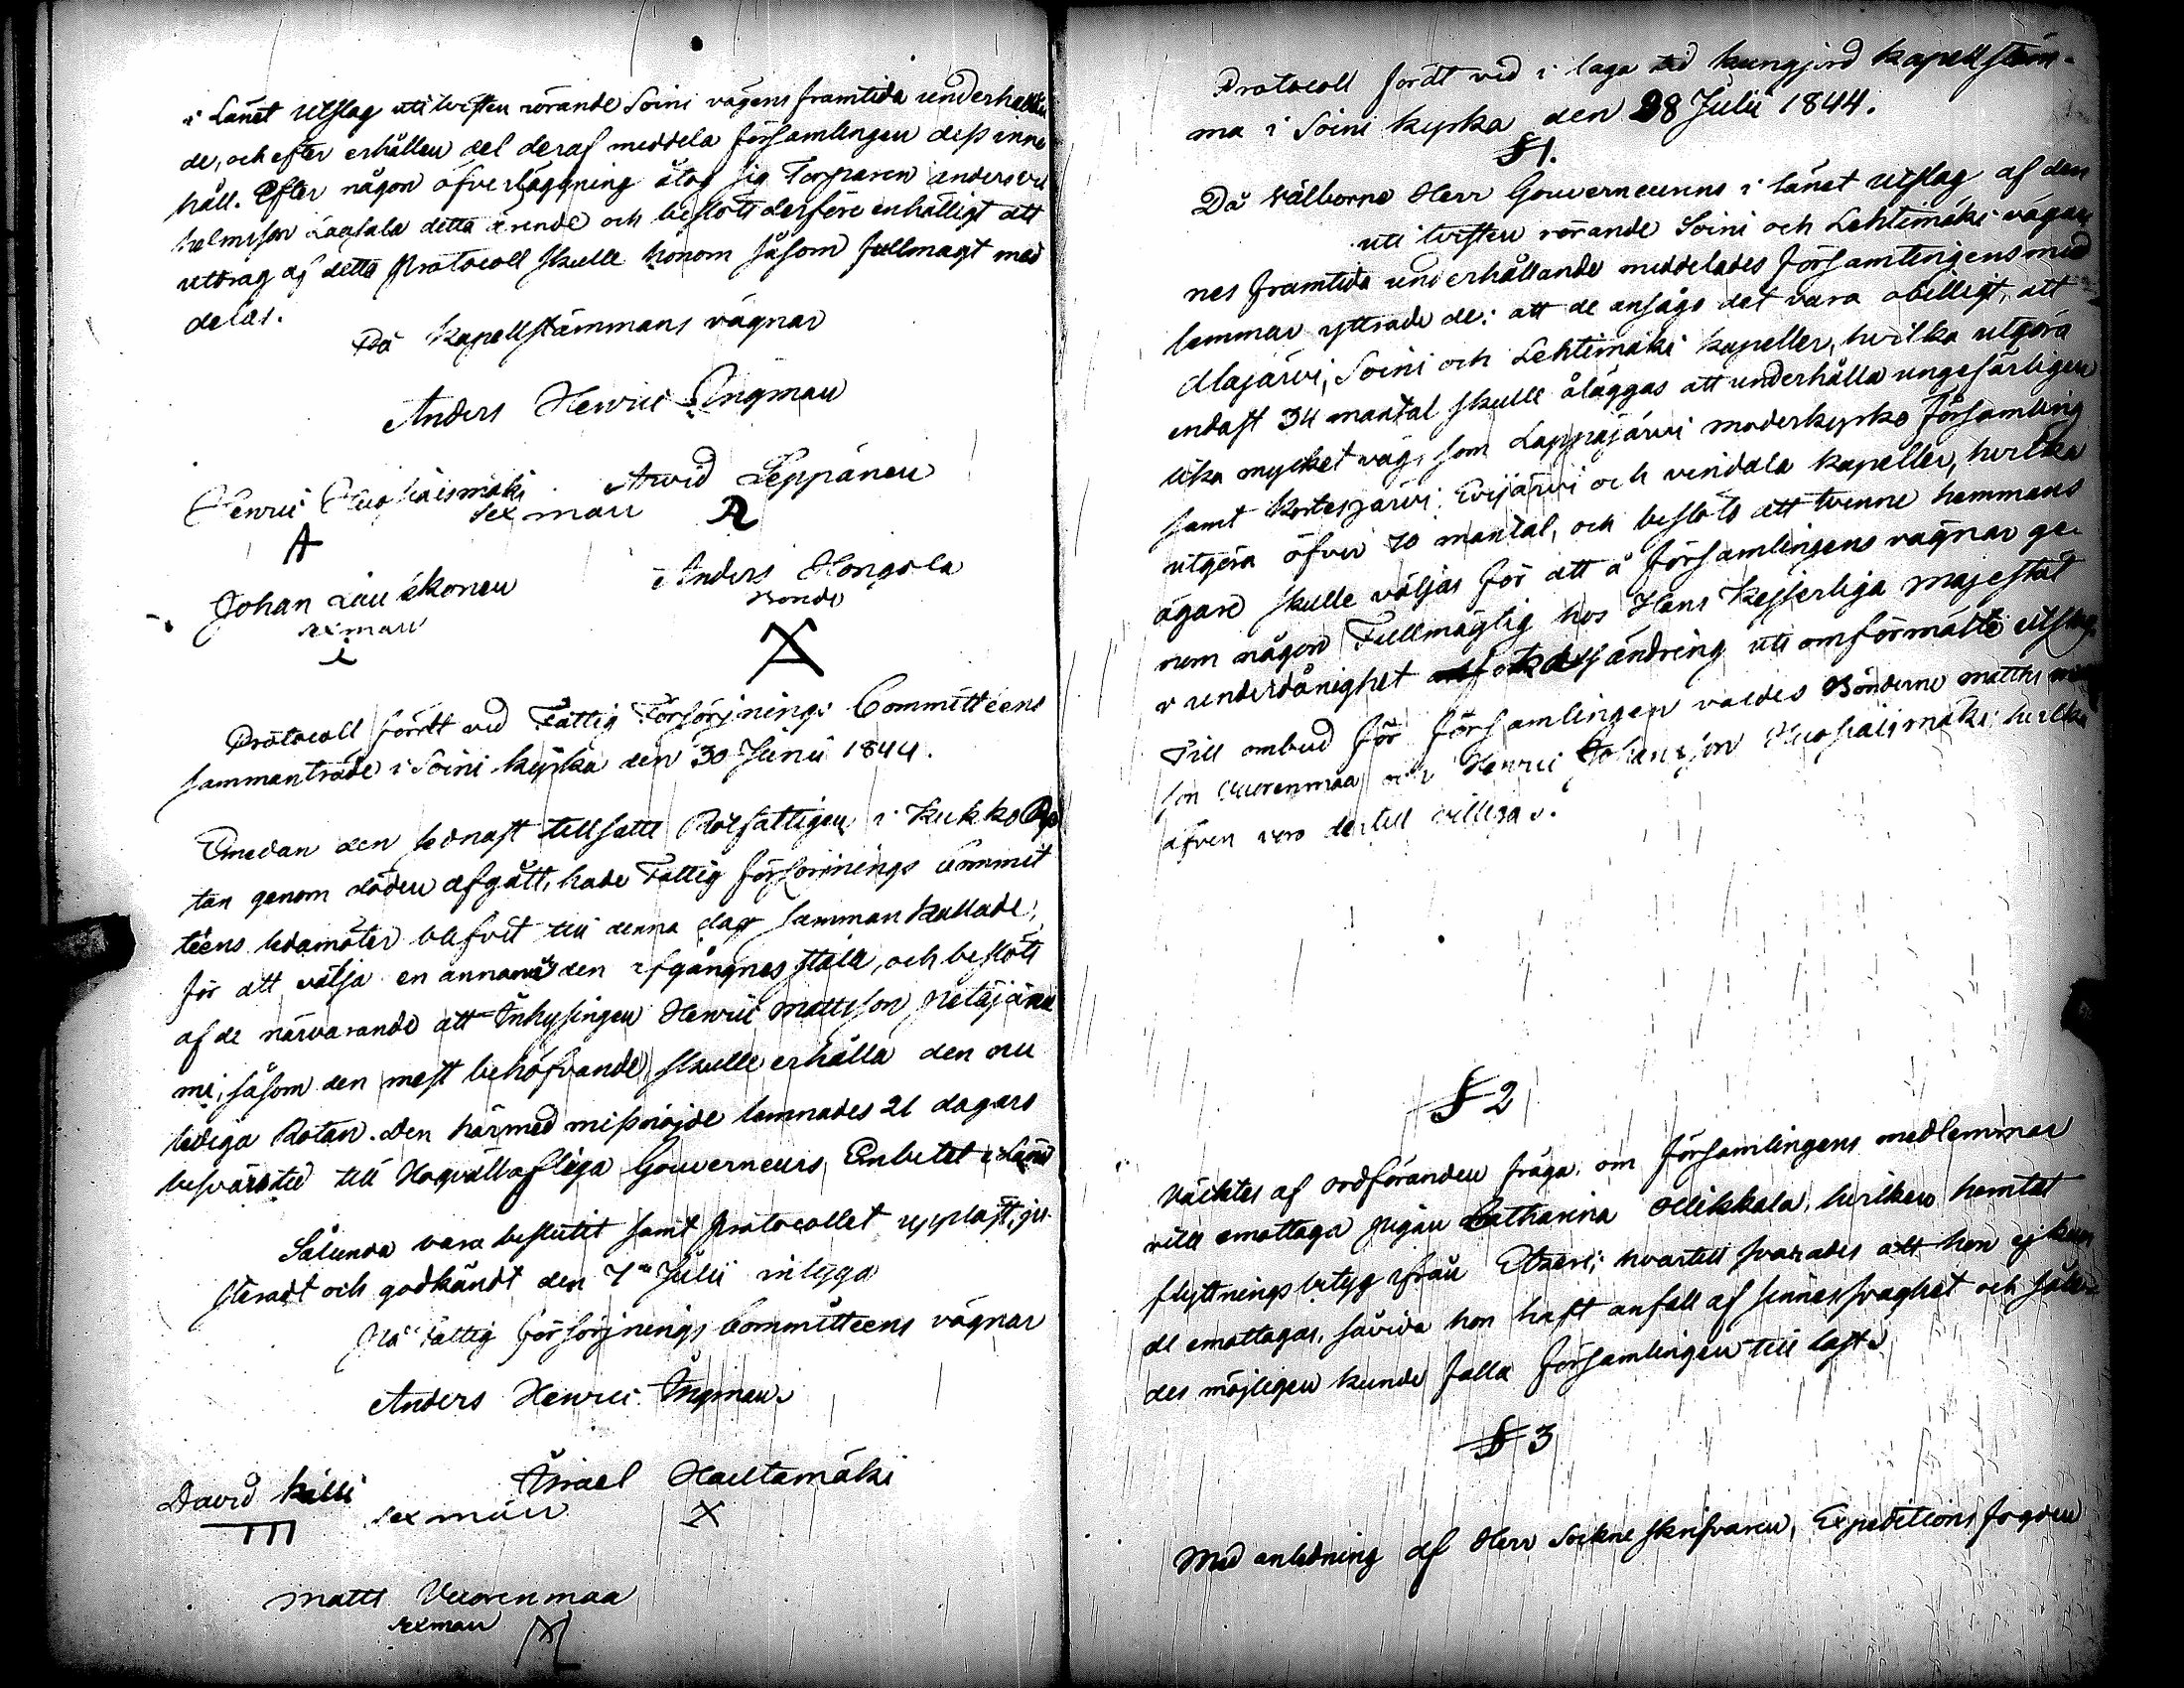 i Länet Utslag uti tvisten rörande Soini vägens framtida underhållan
de, och efter erhållen del deraf meddela församlingen dess inne
håll. Efter någon öfverläggning åtog sig Torparen Anders Vil
helmsson Laasala detta ärende och beslöts derföre enhälligt att
utdrag af detta Protocoll skulle honom såsom fullmagt med
delas.
På Kapellstämmans vägnar
Anders Henric Ingman
Henric Huopaismäki Arvid Leppänen
sexman
A
Johan Liukkonen Anders Hongola
sexman Bonde
Protocoll fördt vid Fattig Försörjnings Committéens
sammanträde i Soini kyrka den 30 Junii 1844.
Emedan den sednast tillsatte Rotfattigen i Kukko Ro
tan genom döden afgått, hade Fattig försörjnings Commit
téens ledamöter blifvit till denna dag sammankallade,
för att välja en annan i den afgångnes ställe, och beslöts
af de närvarande att Inhysingen Henric Mattsson Petäjänie
mi, såsom den mest behöfvande, skulle erhålla den nu
lediga Rotan. Den härmed missnöjde lemnades 21 dagars
besvärstid till Högvällofliga Gouverneurs Embetet i Länet
Sålunda vara beslutit samt Protocollet uppläst, ju-
steradt och godkändt den 7de Julii intyga
På Fattig försörjnings Committéens vägnar
Anders Henric Ingman
David Killi Israel Hautamäki
sexmän X
III
Matts Vuorenmaa
sexman
Protocoll fördt vid i laga tid kungjord Kapellstäm-
ma i Soini kyrka den 28 Julii 1844.
§ 1.
Då Välborne Herr Gouverneurens i länet utslag af den
uti tvisten rörande Soini och Lehtimäki vägar
nes framtida underhållande meddelades församlingens med
lemmar yttrade de: att de ansågo det vara obilligt, att
Alajärvi, Soini och Lehtimäki kapeller, hvilka utgöra
endast 34 mantal skulle åläggas att underhålla ungefärligen
lika mycket väg, som Lappajärvi moderkyrko församling
samt Kortesjärvi, Evijärvi och Vindala kapeller, hvilka
utgöra öfver 70 mantal, och beslöts att tvenne hemmans
ägare skulle väljas för att å församlingens vägnar ge-
nom någon Fullmägtig hos Hans Kejserliga Majestät
i underdånighet ändring uti omförmälte utslag.
Till ombud för församlingen valdes Bönderne Matths
son Vuorenmaa och Henric Johansson Huopaismäki hvilka
äfven voro dertill villiga.
§ 2
Väcktes af ordföranden fråga, om församlingens medlemmar
ville emottaga pigan Catharina Ollikkala, hvilken hemtat
flyttningsbetyg ifrån Etseri; hvartill svarades att hon ej kun
de emottagas, såvida hon haft anfall af sinnessvaghet och såle-
des möjligen kunde falla församlingen till last.
§ 3
Med anledning af Herr Sockneskrifvaren, Expeditions fogden